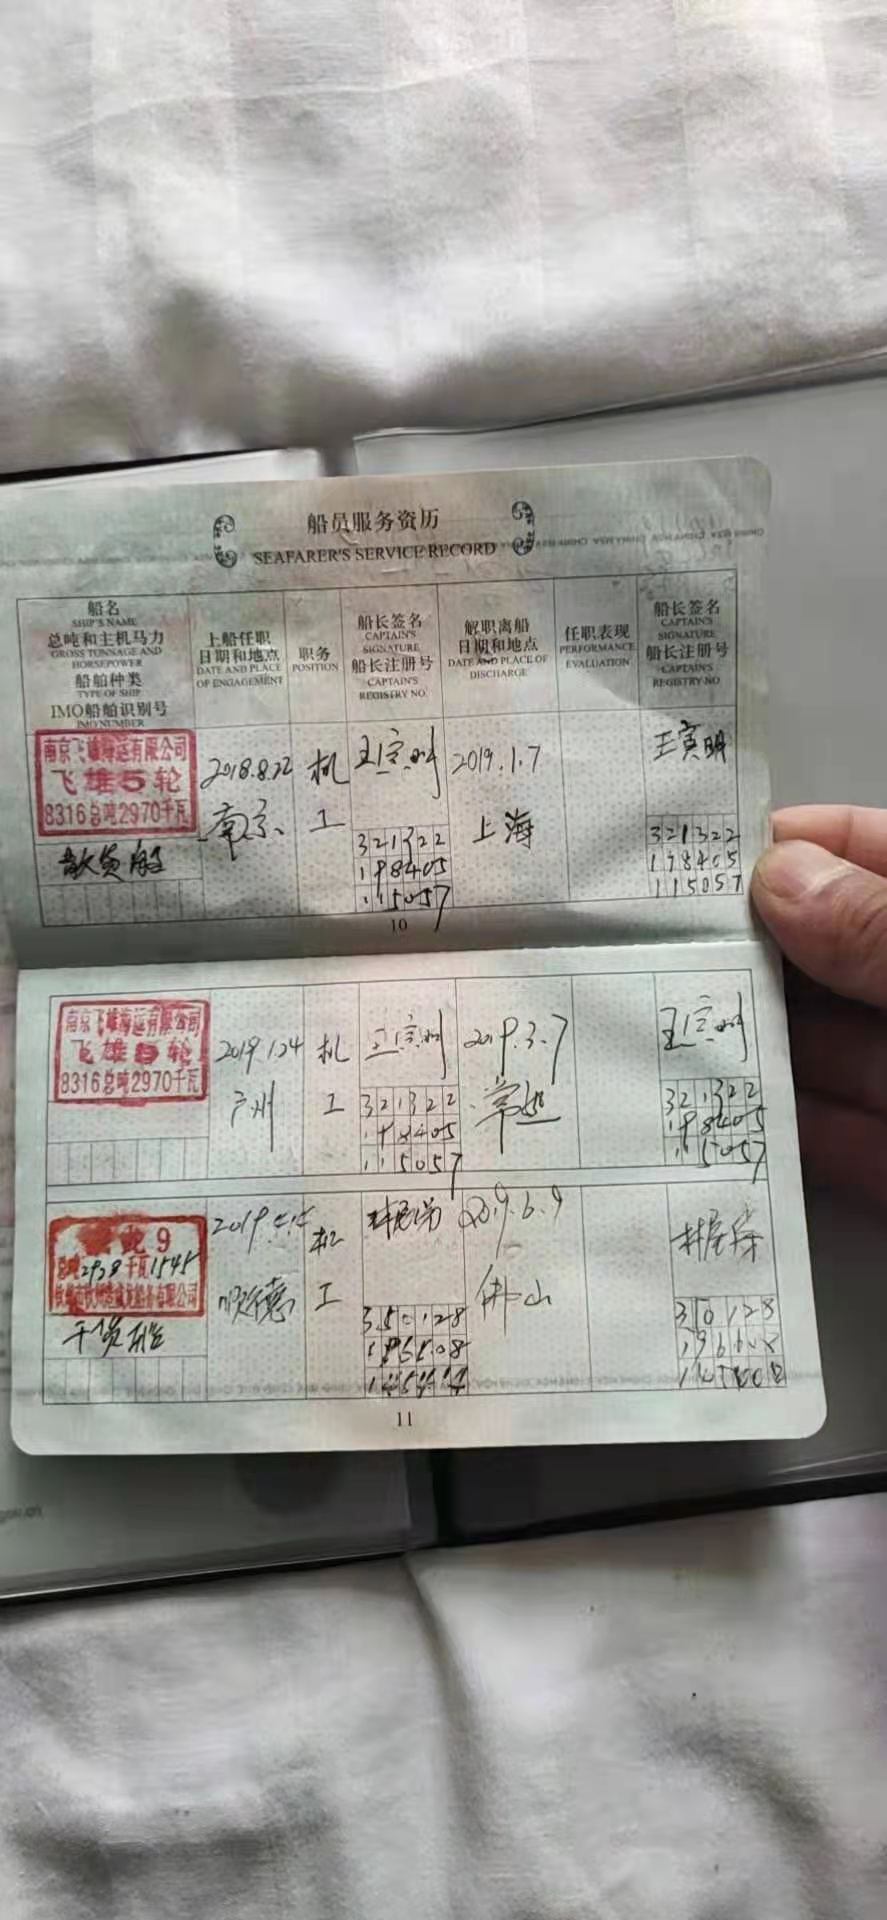 船员服务资历
SEAFARER'S SERVICE RECORD
船名
SHIP'S NAME
总吨和主机马力
GROSS TONNAGE AND
HORSEPOWER
船舶种类
TYPE OF SHIP
IMO船舶识别号
IMO NUMBER
上船任职
日期和地点
DATE AND PLACE
OF ENGAGEMENT
职务
POSITION
船长签名
CAPTAIN'S
SIGNATURE
船长注册号
CAPTAIN'S
REGISTRY NO
解职离船
日期和地点
DATE AND PLACE OF
DISCHARGE
任职表现
PERFORMANCE
EVALUATION
船长签名
CAPTAIN'S
SIGNATURE
船长注册号
CAPTAIN'S
REGISTRY NO
南京飞雄海运有限公司
飞雄5轮
8316总吨2970千瓦
散货船
2018.8.22
南京
机
工
321322
198405
115057
2019.1.7
上海
王寅明
321322
198405
115057
10
南京飞雄海运有限公司
飞雄5轮
8316总吨2970千瓦
2019.1.24
广州
机
工
321322
198405
115057
2019.3.7
常熟
321322
198405
115057
9
总吨2938千瓦1545
干货船
顺德
机
工
350128
2019.6.9
佛山
350128
11